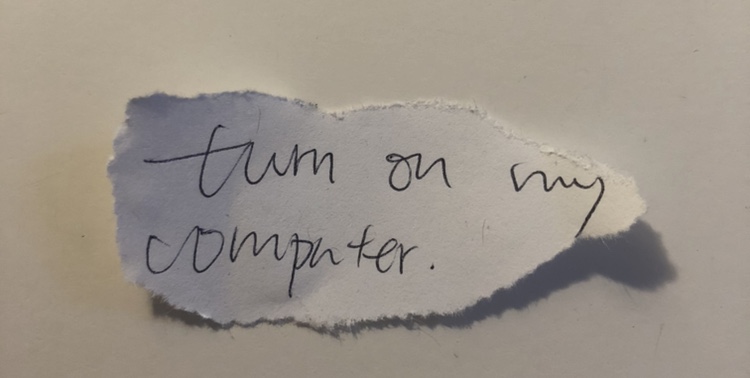 turn on my
computer.